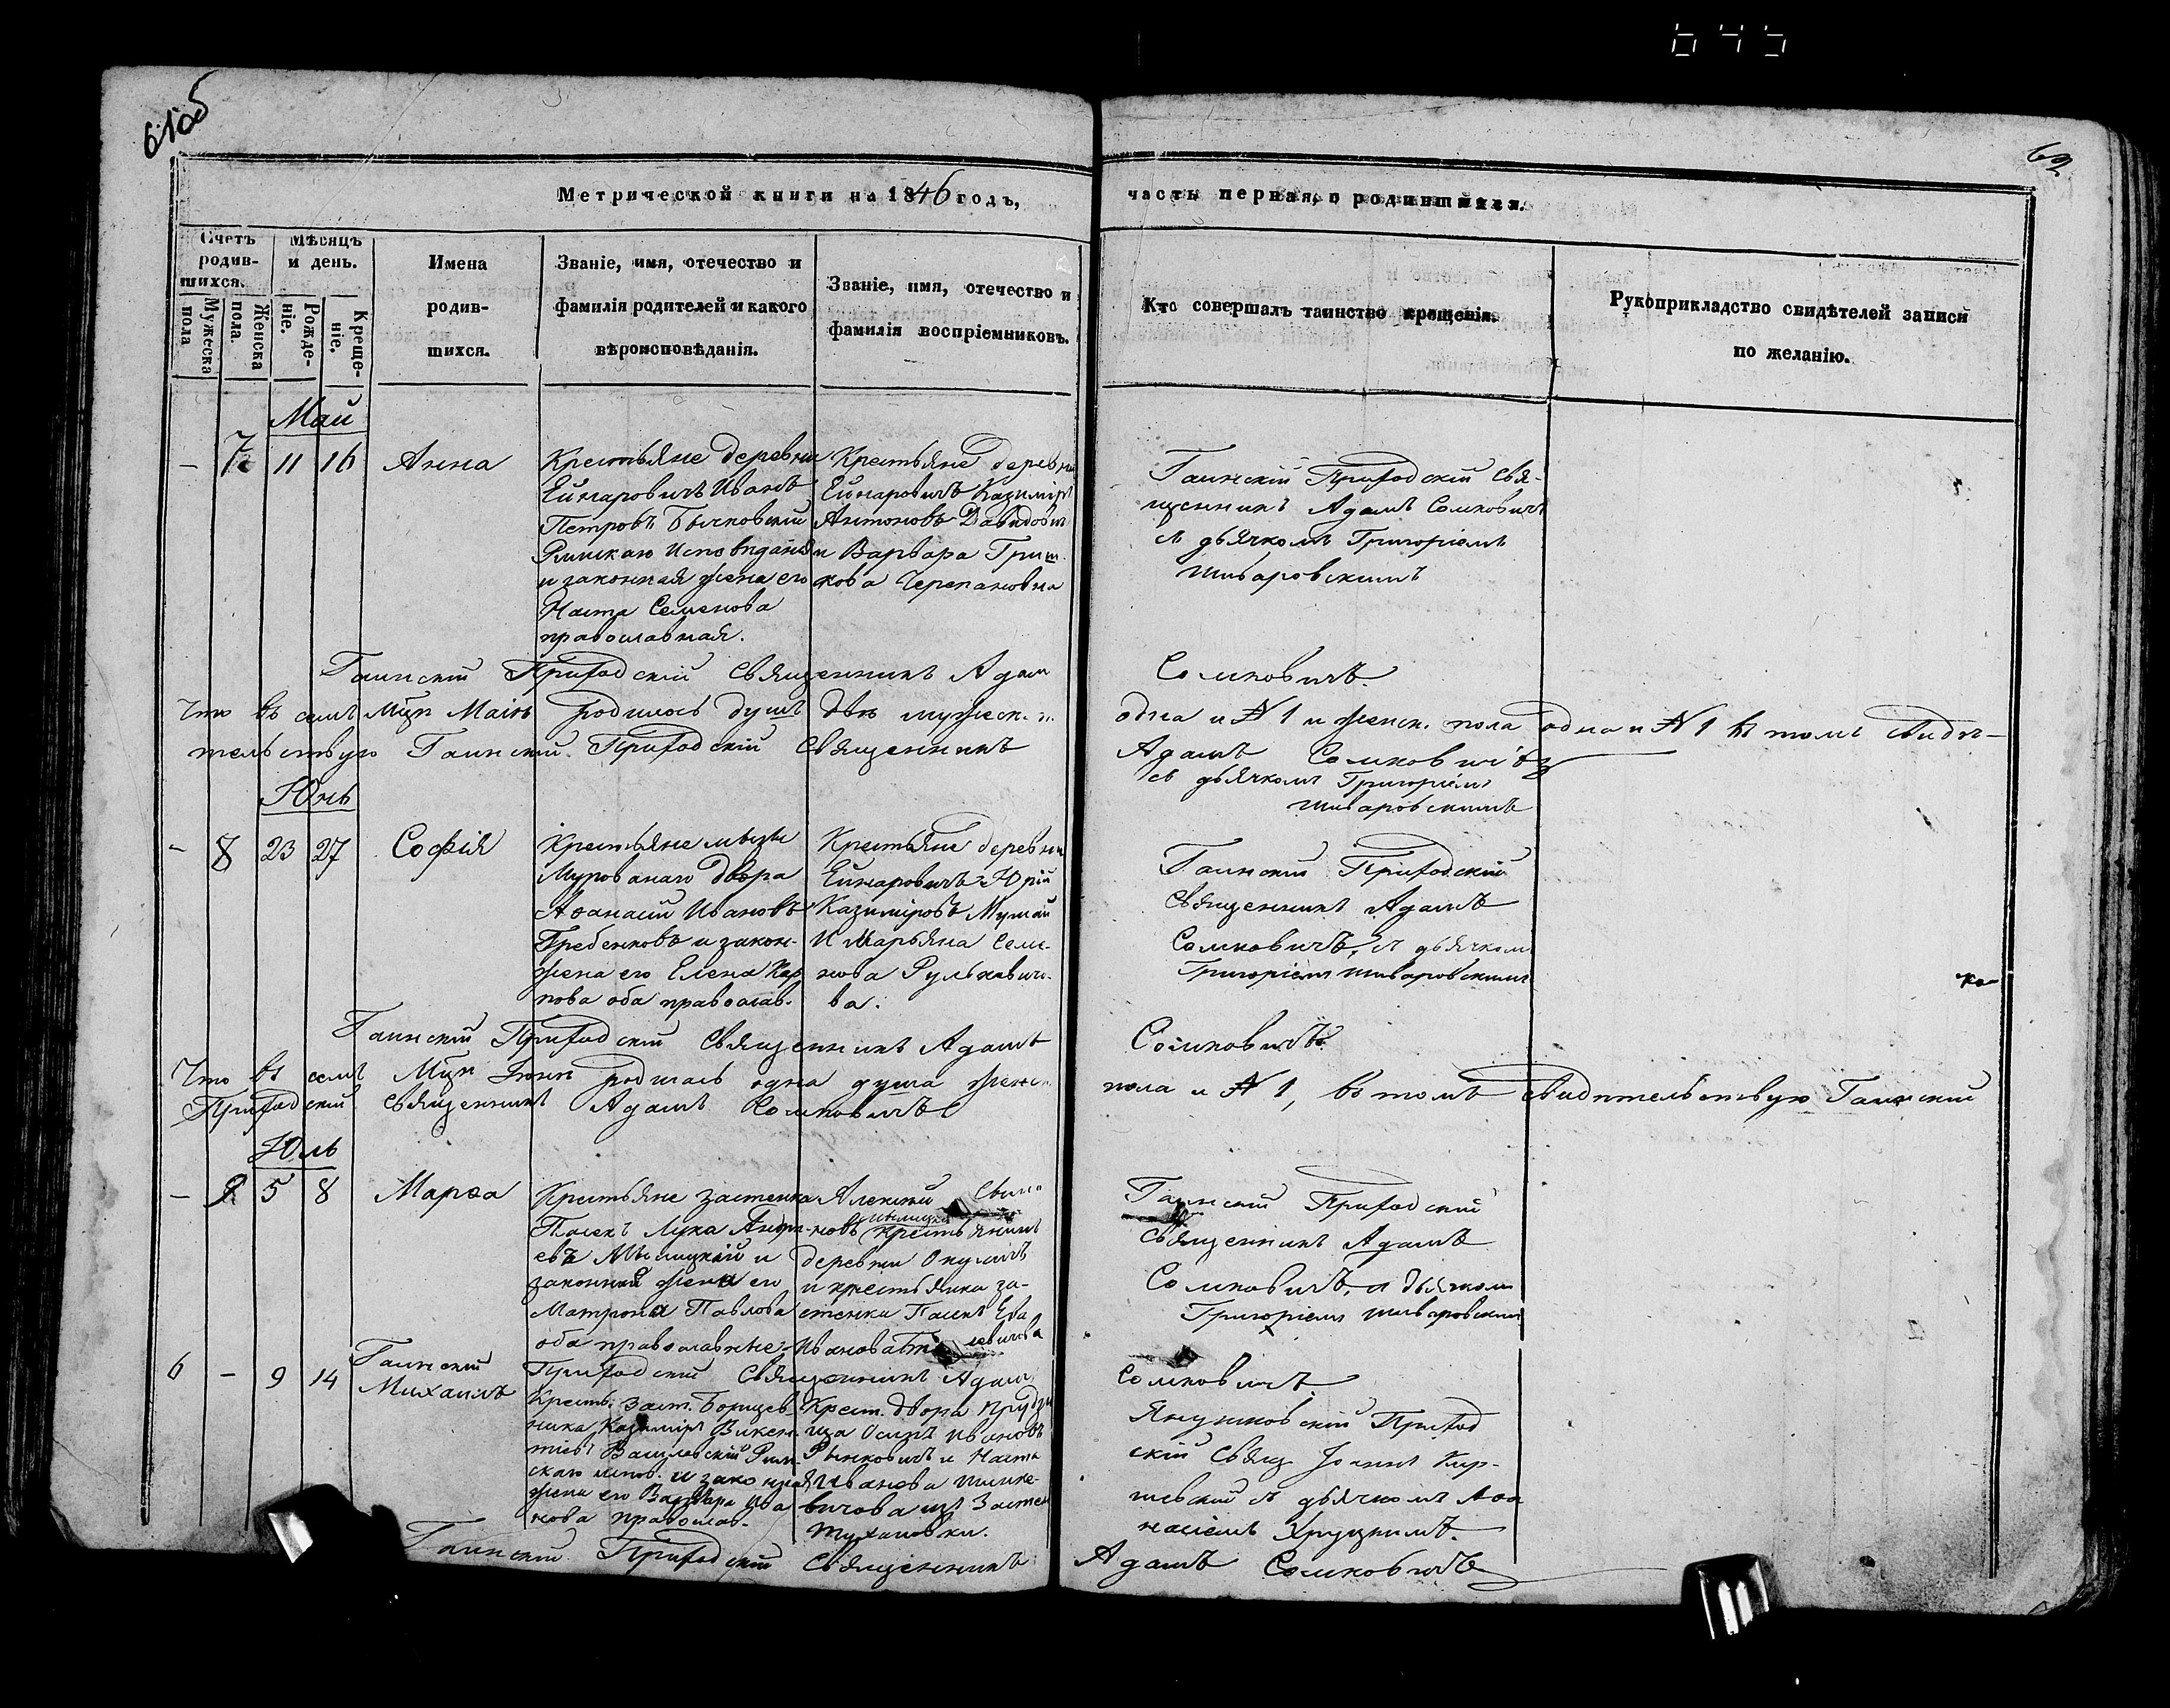 645
61об
62
Метрической книги на 1846 годъ,
часть первая, о родившихся.
Счетъ родив-
шихся.
Мужеска пола
Женска пола.
Мѣсяцъ и день.
Рожде-
ніе.
Креще-
ніе.
Имена
родив-
шихся.
Званіе, имя, отечество и
фамилія родителей и какого
вѣроисповѣданія.
Званіе, имя, отечество и
фамилія воспріемниковъ.
Кто совершалъ таинство крещенія.
Рукоприкладство свидѣтелей записи
по желанію.
Май
– 7 11 16 Анна
Крестьяне деревни
Ейнаровичъ Иванъ
Петровъ Бычковскій
Римскаго Исповѣданія
и законная жена его
Наста Семенова
православная.
Крестьяне деревни
Ейнаровичъ Казиміръ
Антоновъ Давидович
и Варвара Гриш-
кова Черепановна
Гаинскій Приходскій Свя-
щенникъ Адамъ Сомковичъ
съ дьячкомъ Григоріемъ
Шиваровскимъ
Гаинскій Приходскій Священникъ Адам Сомковичъ.
Что въ семъ Мцѣ Маіѣ родилось душъ двѣ мужеск. п. одна и № 1 и женск. пола одна и № 1 въ томъ свидѣ-
тельствую Гаинскій Приходскій Священникъ Адамъ Сомковичъ
съ дьячкомъ Григоріемъ
Шиваровскимъ
Юнь
- 8 23 27 Софія
Крестьяне мызы
Мурованаго Двора
Аѳанасій Ивановъ
Гребенковъ и закон-
жена его Елена Кар
пова оба православ.
Крестьяне деревни
Ейнаровичъ Юрій
Казиміровъ
И Марьяна Семе-
нова Рулькевичо-
ва.
Гаинскій Приходскій
Священникъ Адамъ
Сомковичъ, съ дьячком
Григоріемъ Шиваровскимъ
Гаинскій Приходскій Священникъ Адамъ Сомковичъ
Что въ семъ Мцѣ Іюнѣ родилась одна душа женск. пола и № 1, въ томъ свидѣтельствую Гаинскій
Приходскій Священникъ Адамъ Сомковичъ
Юль
– 9 5 8 Марѳа
Крестьяне застенка
Пасекъ Лука Андре-
евъ и
законная жена его
Матрона Павлова
оба православные
Алексѣй
новъ крестьянинъ
деревни
и крестьянка за-
стенка Пасекъ Ева
Иванова
Гаинскій Приходскій
Священникъ Адамъ
Сомковичъ, съ дьячком
Григоріемъ Шиваровским
Гаинскій Приходскій Священникъ Адамъ Сомковичъ
6 – 9 14 Михаилъ
Кресть. Заст. Борщев-
ника Казиміръ Викен-
тіевъ Рим-
скаго испов. и законная
жена его Варвара Ива
нова православ.
Крест. Двора
Осипъ Ивановъ
и Наста
Иванова
изъ Застен
Тухановки.
Янушковскій Приход
скій Свящ Іоаннъ
съ дьячкомъ Аѳа
насіемъ Хруцкимъ.
Гаинскій Приходскій Священникъ Адамъ Сомковичъ